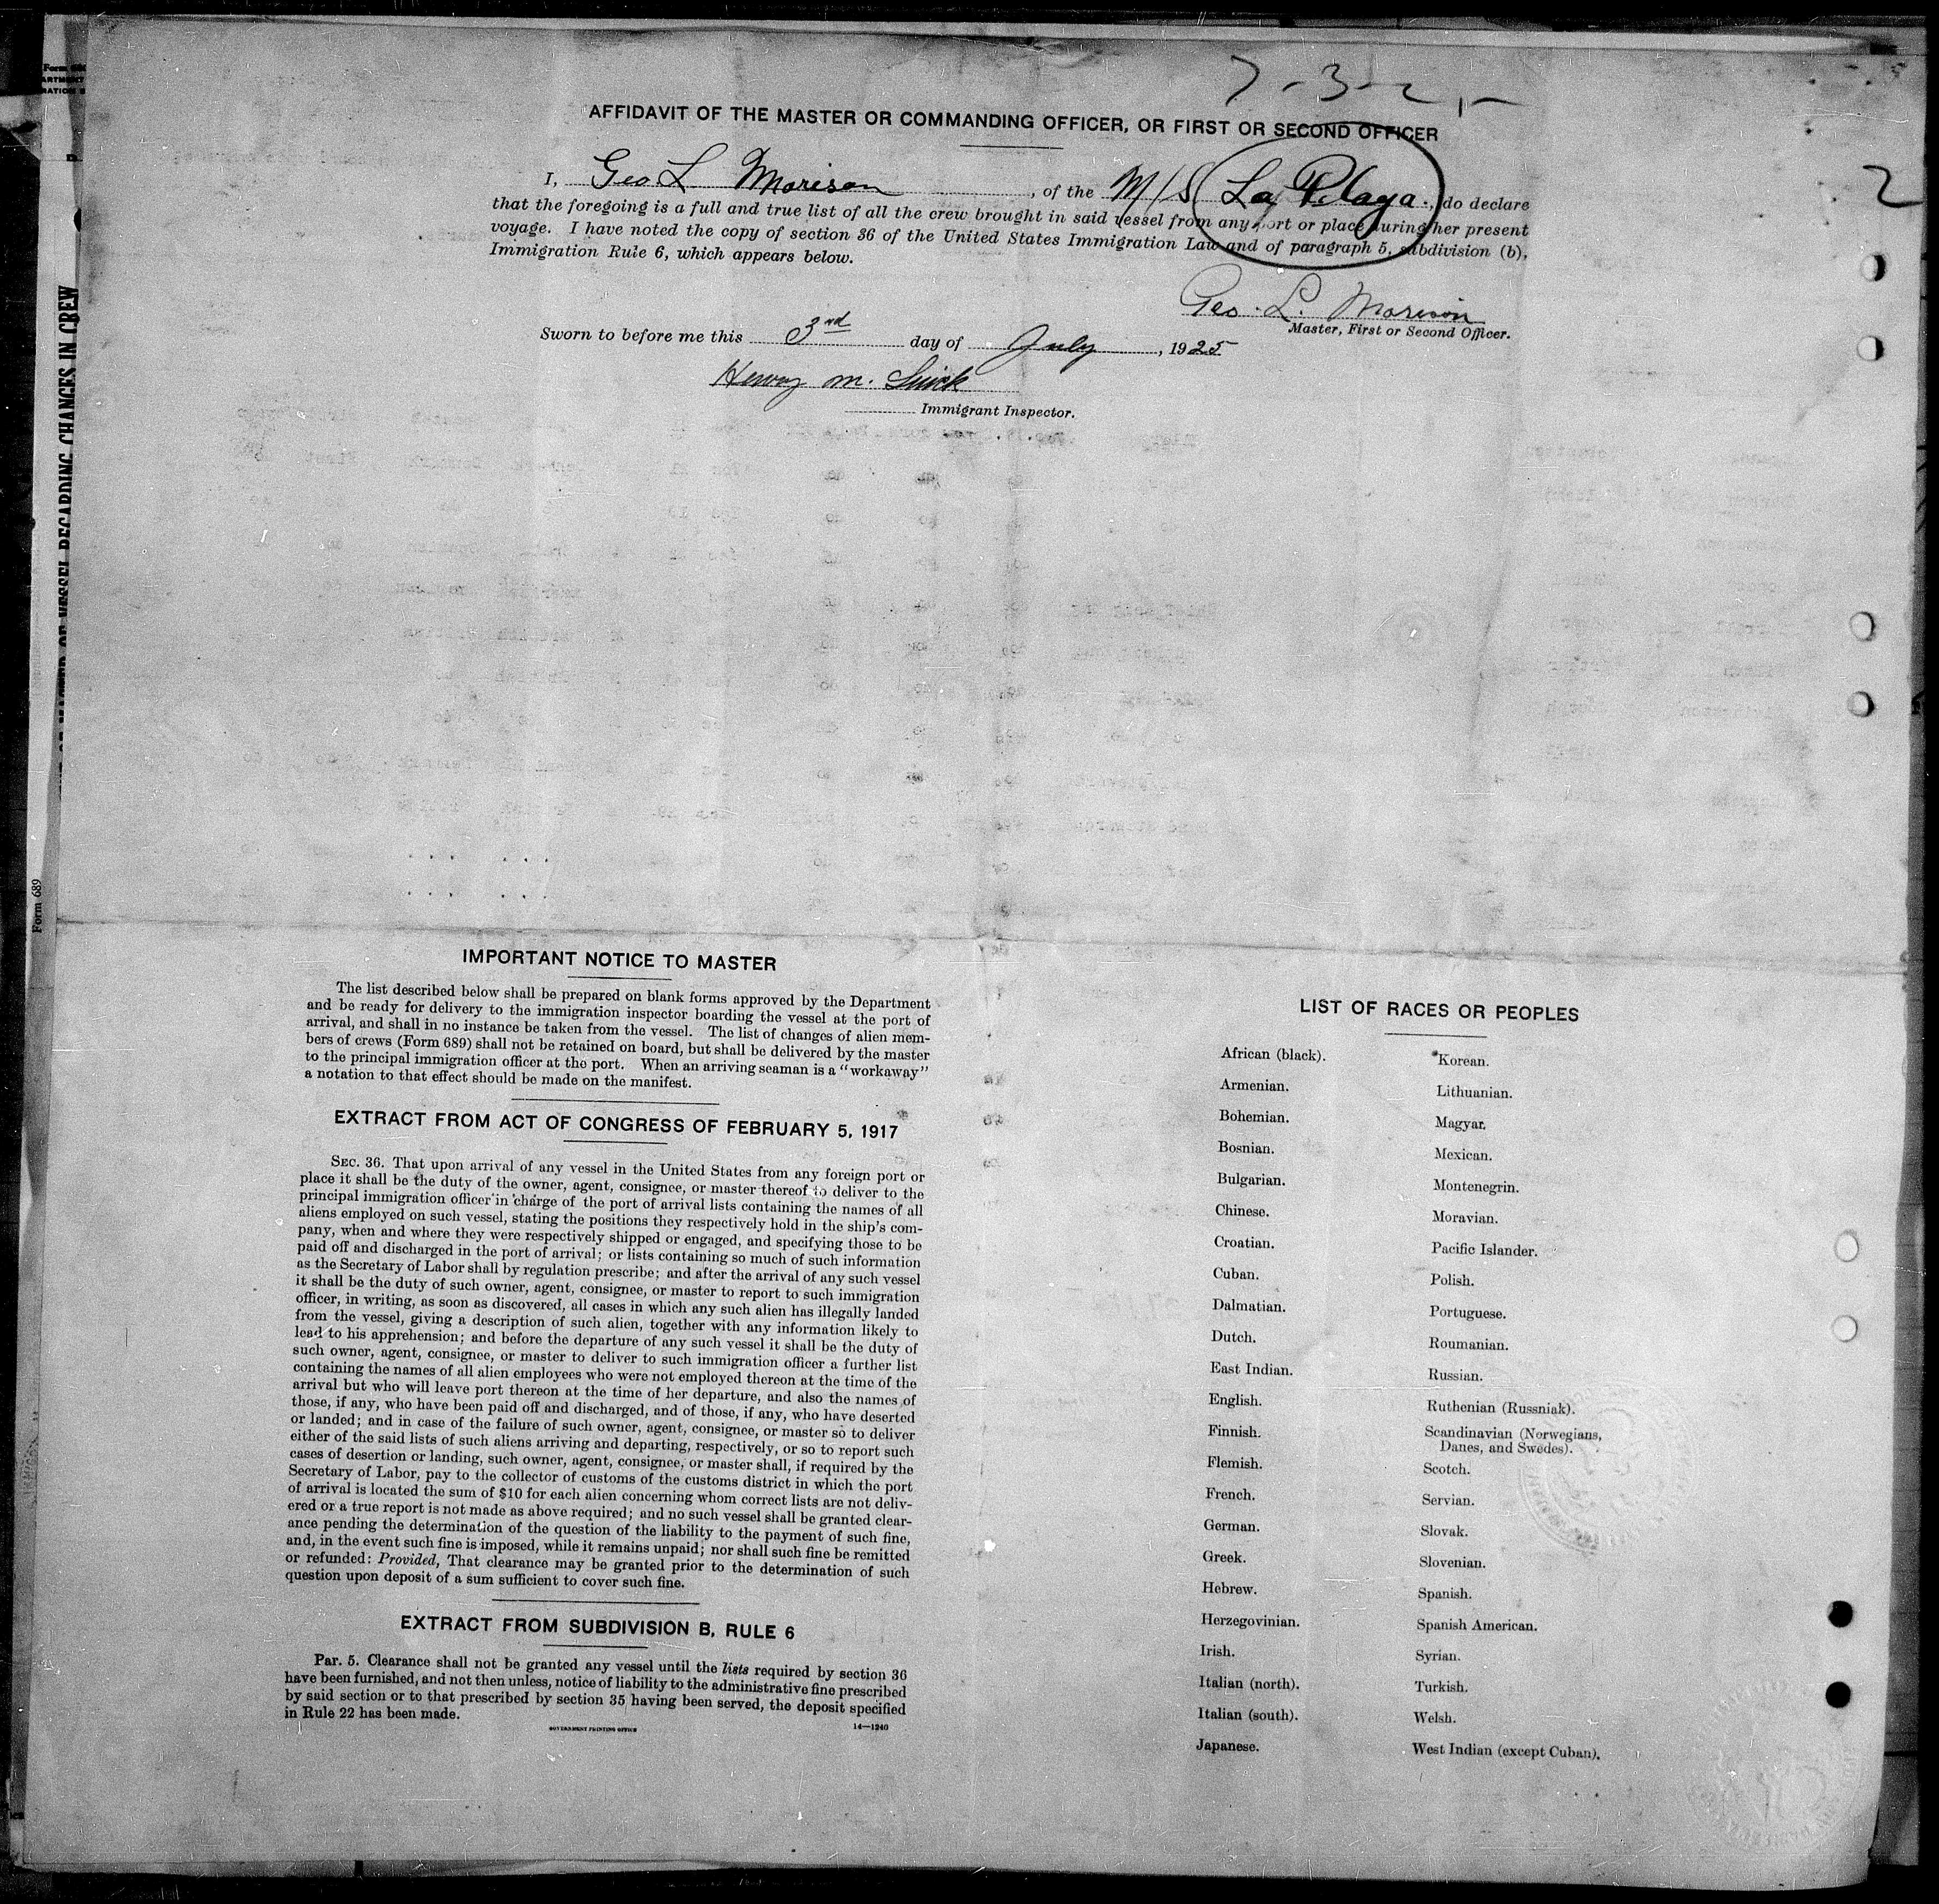 7-3-2
AFFIDAVIT OF THE MASTER OR COMMANDING OFFICER, OR FIRST OR SECOND OFFICER
2
I, Geo L Morison, of the M/S La Playa, do declare
that the foregoing is a full and true list of all the crew brought in said vessel from any port or place during her present
voyage. I have noted the copy of section 36 of the United States Immigration Law and of paragraph 5, subdivision (b),
Immigration Rule 6, which appears below.
Geo. L. Morison
Master, First or Second Officer.
Sworn to before me this 3rd day of July, 1925
Henry M.
Immigrant Inspector.
REGARDING CHANGES IN CREW
Form 689
IMPORTANT NOTICE TO MASTER
The list described below shall be prepared on blank forms approved by the Department
and be ready for delivery to the immigration inspector boarding the vessel at the port of
arrival, and shall in no instance be taken from the vessel. The list of changes of alien mem-
bers of crews (Form 689) shall not be retained on board, but shall be delivered by the master
to the principal immigration officer at the port. When an arriving seaman is a "workaway"
a notation to that effect should be made on the manifest.
EXTRACT FROM ACT OF CONGRESS OF FEBRUARY 5, 1917
SEC. 36. That upon arrival of any vessel in the United States from any foreign port or
place it shall be the duty of the owner, agent, consignee, or master thereof to deliver to the
principal immigration officer in charge of the port of arrival lists containing the names of all
aliens employed on such vessel, stating the positions they respectively hold in the ship's com-
pany, when and where they were respectively shipped or engaged, and specifying those to be
paid off and discharged in the port of arrival; or lists containing so much of such information
as the Secretary of Labor shall by regulation prescribe; and after the arrival of any such vessel
it shall be the duty of such owner, agent, consignee, or master to report to such immigration
officer, in writing, as soon as discovered, all cases in which any such alien has illegally landed
from the vessel, giving a description of such alien, together with any information likely to
lead to his apprehension; and before the departure of any such vessel it shall be the duty of
such owner, agent, consignee, or master to deliver to such immigration officer a further list
containing the names of all alien employees who were not employed thereon at the time of the
arrival but who will leave port thereon at the time of her departure, and also the names of
those, if any, who have been paid off and discharged, and of those, if any, who have deserted
or landed; and in case of the failure of such owner, agent, consignee, or master so to deliver
either of the said lists of such aliens arriving and departing, respectively, or so to report such
cases of desertion or landing, such owner, agent, consignee, or master shall, if required by the
Secretary of Labor, pay to the collector of customs of the customs district in which the port
of arrival is located the sum of $10 for each alien concerning whom correct lists are not deliv-
ered or a true report is not made as above required; and no such vessel shall be granted clear-
ance pending the determination of the question of the liability to the payment of such fine,
and, in the event such fine is imposed, while it remains unpaid; nor shall such fine be remitted
or refunded: Provided, That clearance may be granted prior to the determination of such
question upon deposit of a sum sufficient to cover such fine.
EXTRACT FROM SUBDIVISION B, RULE 6
Par. 5. Clearance shall not be granted any vessel until the lists required by section 36
have been furnished, and not then unless, notice of liability to the administrative fine prescribed
by said section or to that prescribed by section 35 having been served, the deposit specified
in Rule 22 has been made.
GOVERNMENT PRINTING OFFICE 14—1240
LIST OF RACES OR PEOPLES
African (black).
Armenian.
Bohemian.
Bosnian.
Bulgarian.
Chinese.
Croatian.
Cuban.
Dalmatian.
Dutch.
East Indian.
English.
Finnish.
Flemish.
French.
German.
Greek.
Hebrew.
Herzegovinian.
Irish.
Italian (north).
Italian (south).
Japanese.
Korean.
Lithuanian.
Magyar.
Mexican.
Montenegrin.
Moravian.
Pacific Islander.
Polish.
Portuguese.
Roumanian.
Russian.
Ruthenian (Russniak).
Scandinavian (Norwegians,
Danes, and Swedes).
Scotch.
Servian.
Slovak.
Slovenian.
Spanish.
Spanish American.
Syrian.
Turkish.
Welsh.
West Indian (except Cuban).